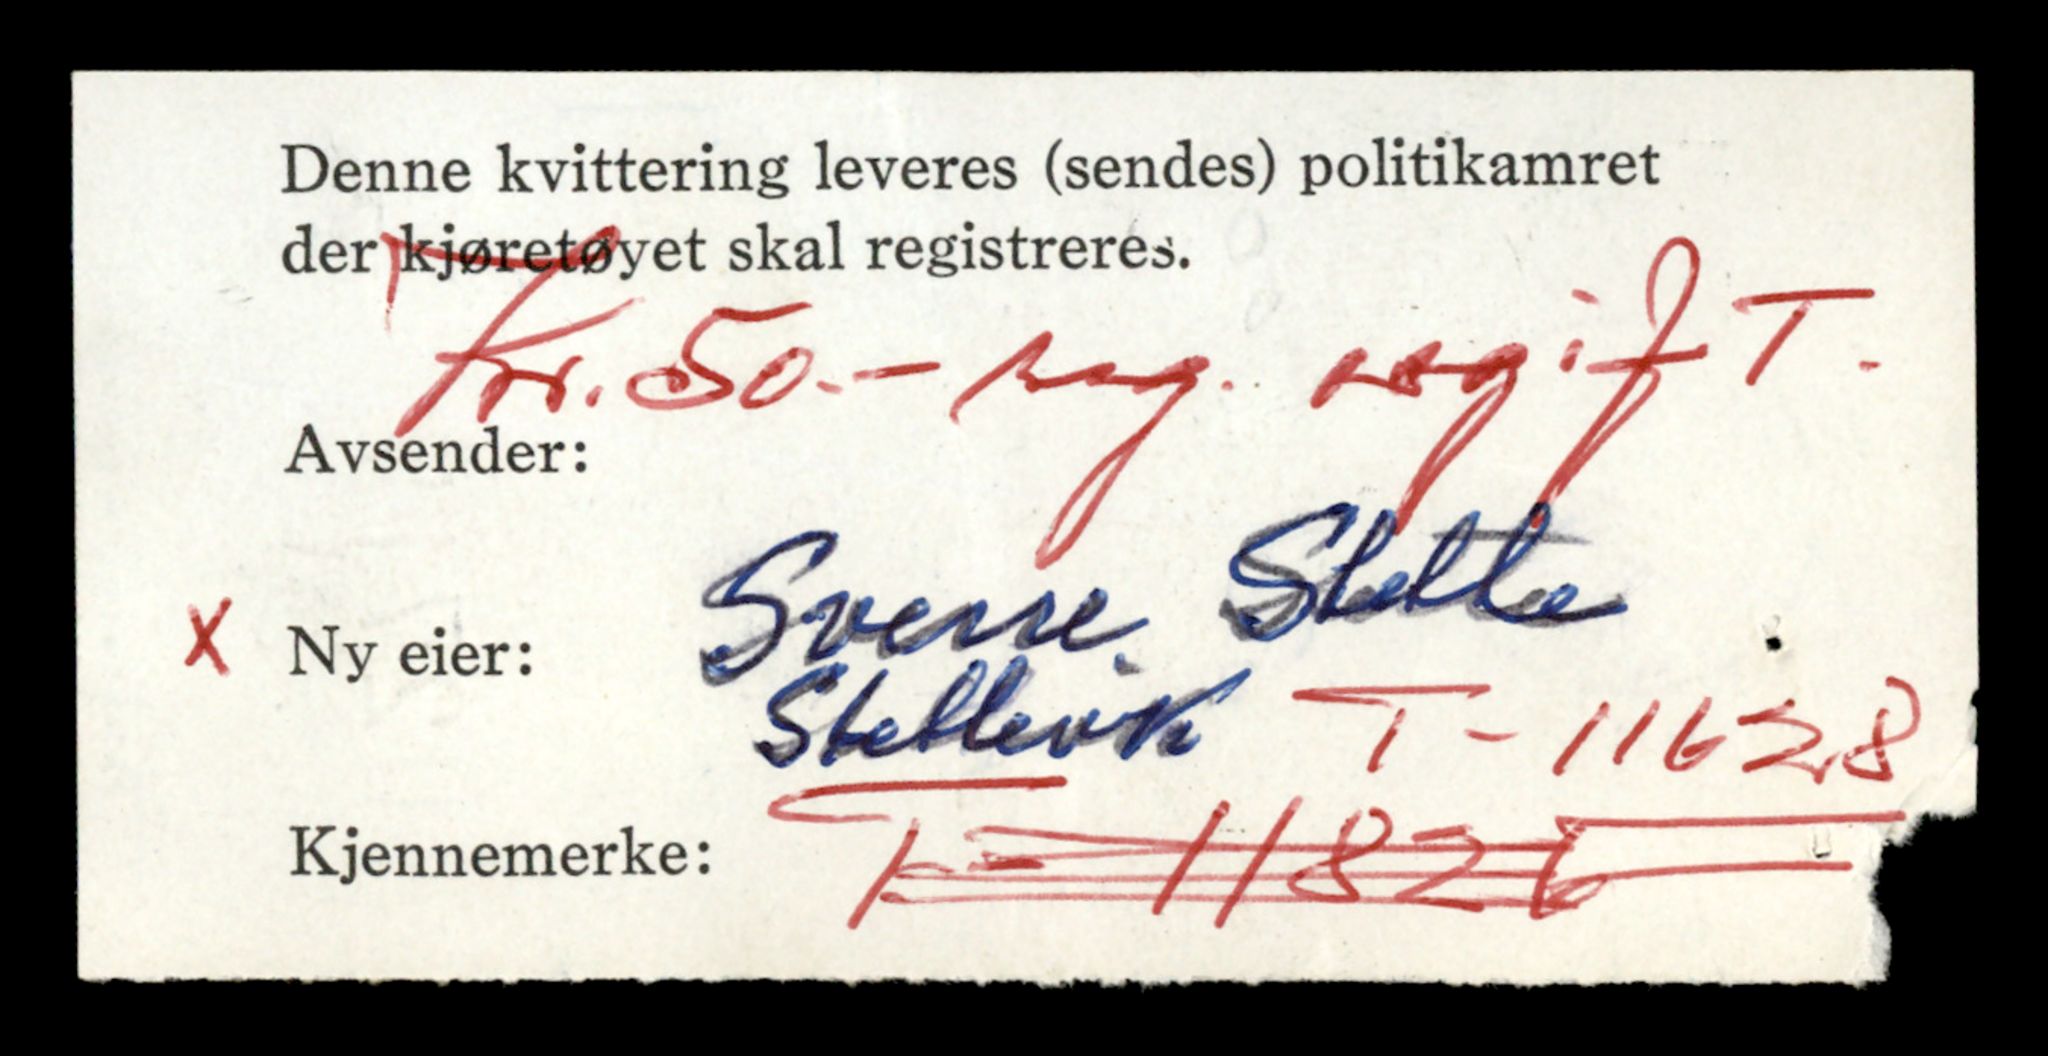 Denne kvittering leveres (sendes) politikamret
der kjøretøyet skal registreres.
Kr. 50.- reg. avgift T.
Avsender:
Sverre Stette
X Ny eier:
Stettevik T-11628
Kjennemerke: T-11826